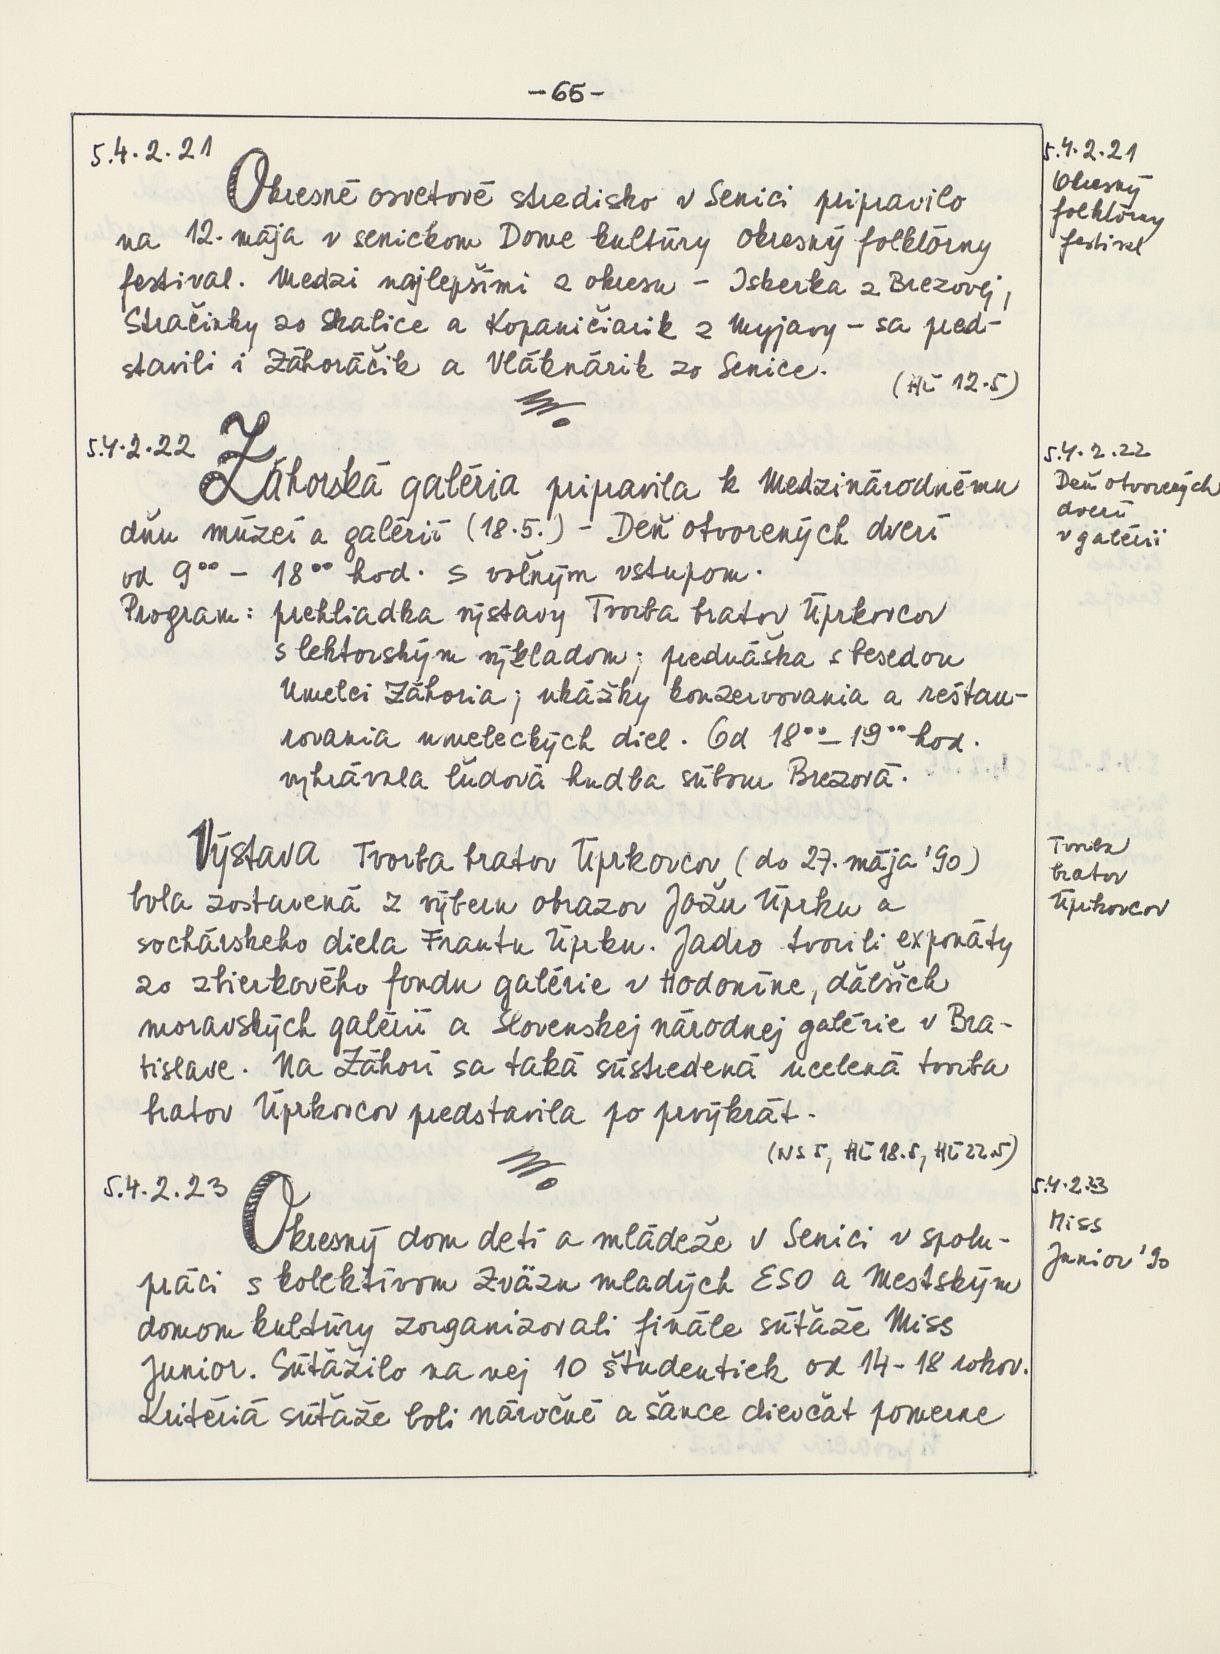 -65-
5.4.2.21
Okresné osvetové stredisko v Senici pripravilo
na 12. mája v senickom Dome kultúry Okresný folklórny
festival. Medzi najlepšími z okresu - Iskerka z Brezovej,
Stračinky zo Skalice a Kopaničiarik z Myjavy - sa pred-
stavili i Záhoráčik a Vláknárik zo Senice.
(HĽ 12.5)
5.4.2.22
Záhorská galéria pripravila k Medzinárodnému
dňu múzeí a galérií (18.5.) - Deň otvorených dverí
od 9⁰⁰ - 18⁰⁰ hod. s voľným vstupom.
Program: prehliadka výstavy Tvorba bratov Úprkovcov
s lektorským výkladom; prednáška s besedou
Umelci Záhoria; ukážky konzervovania a reštau-
rovania umeleckých diel. Od 18⁰⁰ - 19⁰⁰ hod.
vyhrávala ľudová hudba súboru Brezová.
Výstava Tvorba bratov Úprkovcov (do 27. mája '90)
bola zostavená z výberu obrazov Jožu Úprku a
sochárskeho diela Frantu Úprku. Jadro tvorili exponáty
zo zbierkového fondu galérie v Hodoníne, ďalších
moravských galérií a Slovenskej národnej galérie v Bra-
tislave. Na Záhorí sa taká sústredená ucelená tvorba
bratov Úprkovcov predstavila po prvýkrát.
(NS 5, HĽ 18.5, HĽ 22.5)
5.4.2.23
Okresný dom detí a mládeže v Senici v spolu-
práci s kolektívom Zväzu mladých ESO a Mestským
domom kultúry zorganizovali finále súťaže Miss
Junior. Súťažilo na nej 10 študentiek od 14-18 rokov.
Kritériá súťaže boli náročné a šance dievčat pomerne
5.4.2.21
Okresný
folklórny
festival
5.4.2.22
Deň otvorených
dverí
v galérii
Tvorba
bratov
Úprkovcov
5.4.2.23
Miss
Junior '90